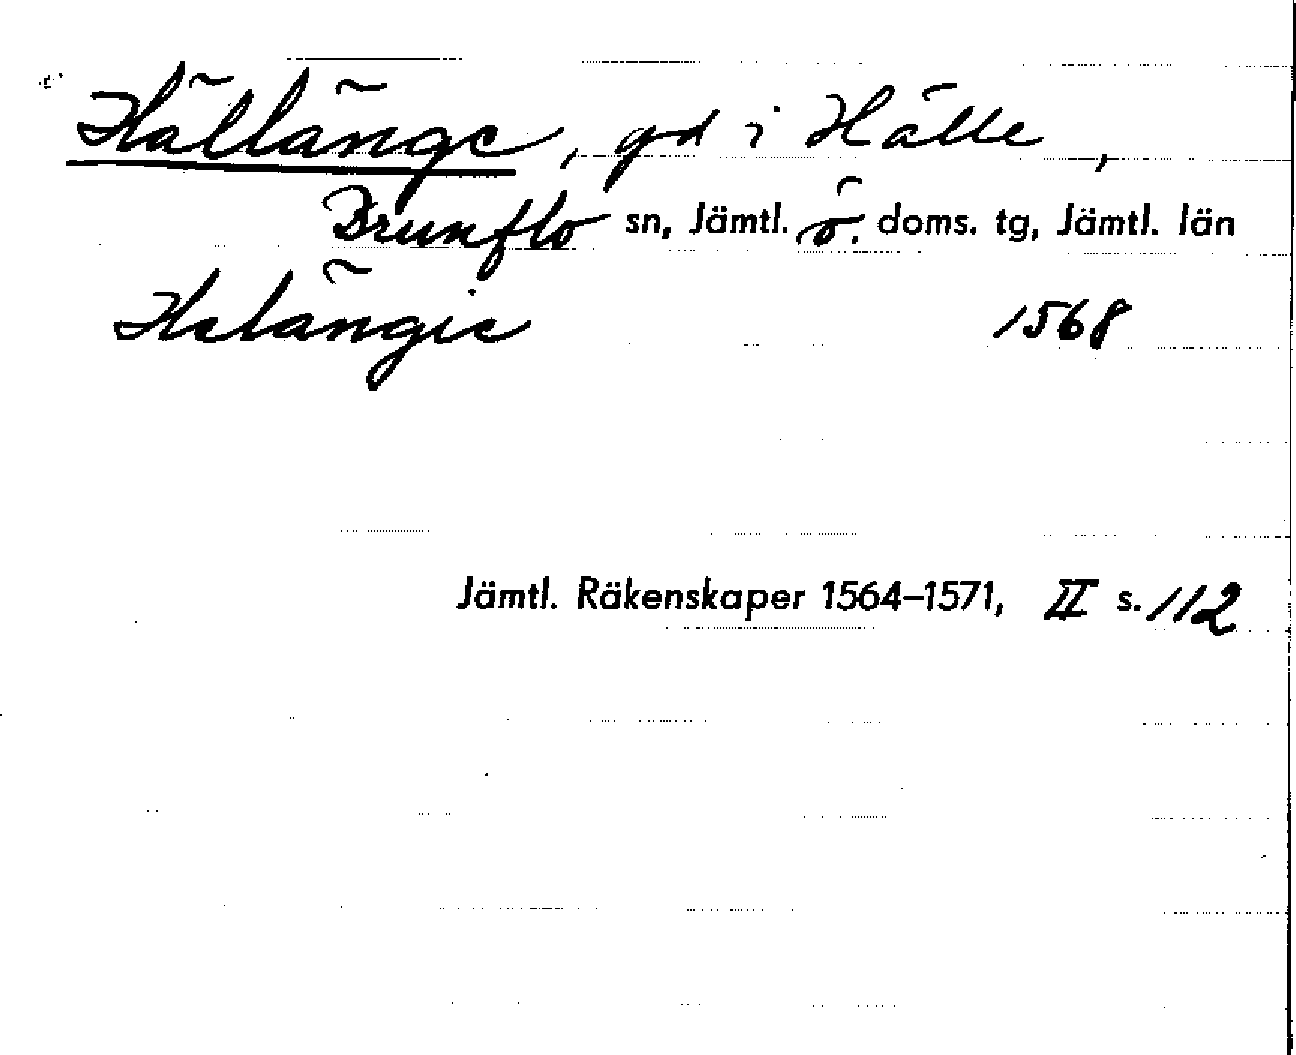 Hällänge, gd i Hälle,
Brunflo sn, Jämtl. ö. doms. tg, Jämtl. län
Helängie 1568
Jämtl. Räkenskaper 1564–1571, II s. 112